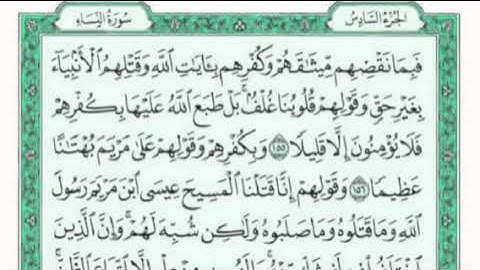 سُورَةُ النِّسَاءِ
الجُزْءُ السَّادِسُ
فَبِمَا نَقْضِهِم مِّيثَٰقَهُمْ وَكُفْرِهِم بِـَٔايَٰتِ ٱللَّهِ وَقَتْلِهِمُ ٱلْأَنۢبِيَآءَ
بِغَيْرِ حَقٍّ وَقَوْلِهِمْ قُلُوبُنَا غُلْفٌۢ ۚ بَلْ طَبَعَ ٱللَّهُ عَلَيْهَا بِكُفْرِهِمْ
فَلَا يُؤْمِنُونَ إِلَّا قَلِيلًا ١٥٥ وَبِكُفْرِهِمْ وَقَوْلِهِمْ عَلَىٰ مَرْيَمَ بُهْتَٰنًا
عَظِيمًا ١٥٦ وَقَوْلِهِمْ إِنَّا قَتَلْنَا ٱلْمَسِيحَ عِيسَى ٱبْنَ مَرْيَمَ رَسُولَ
ٱللَّهِ وَمَا قَتَلُوهُ وَمَا صَلَبُوهُ وَلَٰكِن شُبِّهَ لَهُمْ ۚ وَإِنَّ ٱلَّذِينَ